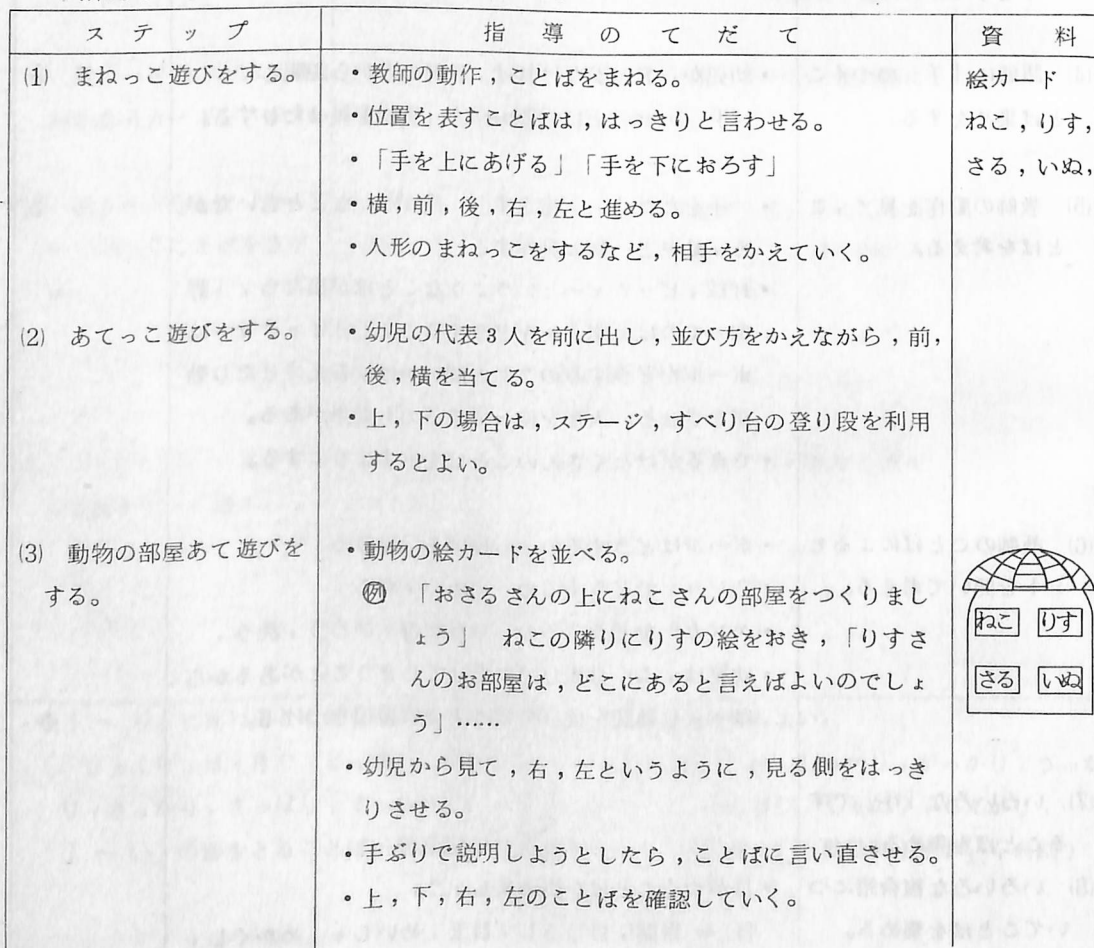 ステップ　指導のてだて　資料
(1) まねっこ遊びをする。
・教師の動作，ことばをまねる。
位置を表すことばは，はっきりと言わせる。
・「手を上にあげる」「手を下におろす」
・横，前，後，右，左と進める。
・人形のまねっこをするなど，相手をかえていく。
絵カード
ねこ，りす，
さる，いぬ，
(2) あてっこ遊びをする。
・幼児の代表3人を前に出し，並び方をかえながら，前，
後，横を当てる。
・上，下の場合は，ステージ，すべり台の登り段を利用
するとよい。
(3) 動物の部屋あて遊びを
する。
・動物の絵カードを並べる。
㋹ 「おさるさんの上にねこさんの部屋をつくりまし
ょう」　ねこの隣りにりすの絵をおき，「りすさ
んのお部屋は，どこにあると言えばよいのでしょ
う」……
・幼児から見て，右，左というように，見る側をはっき
りさせる。
・手ぶりで説明しようとしたら，ことばに言い直させる。
・上，下，右，左のことばを確認していく。
ねこ　りす
さる　いぬ